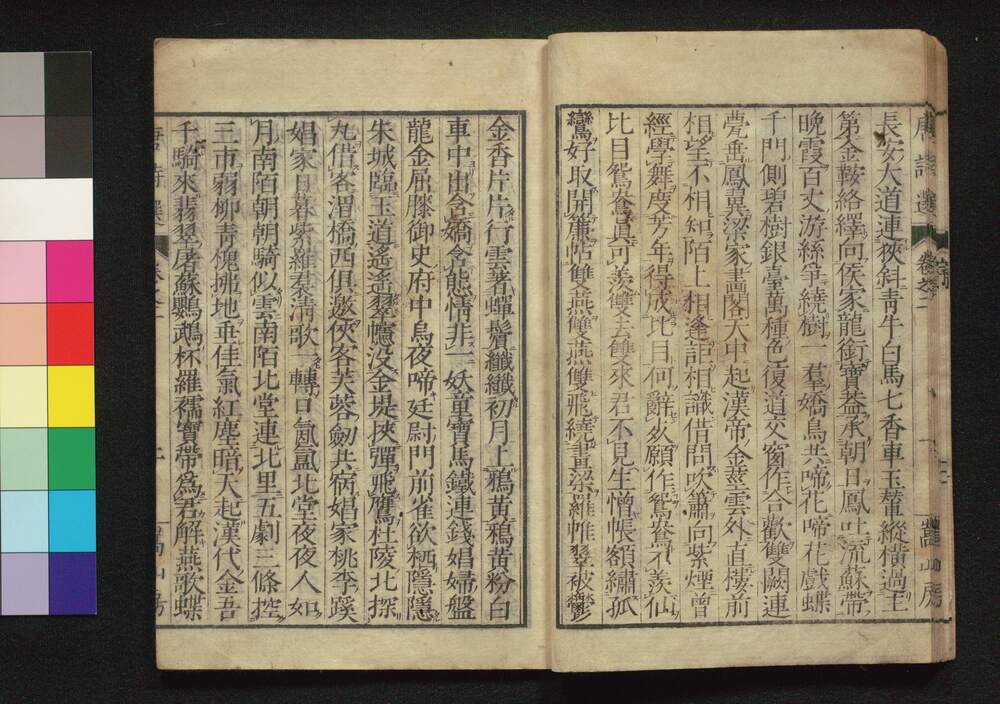 唐詩選
卷之二
嵩山房
長安大道連狹斜青牛白馬七香車玉輦縱橫過主
第金鞍絡繹向侯家龍銜寶蓋承朝日鳳吐流蘇帶
晚霞百丈游絲爭繞樹一羣嬌鳥共啼花啼花戲蝶
千門側碧樹銀臺萬種色復道交窗作合歡雙闕連
甍垂鳳翼梁家畫閣天中起漢帝金莖雲外直樓前
相望不相知陌上相逢詎相識借問吹簫向紫煙曾
經學舞度芳年得成比目何辭死願作鴛鴦不羨仙
比目鴛鴦眞可羨雙去雙來君不見生憎帳額繡孤
鸞好取開簾帖雙燕雙燕雙飛繞畫梁羅帷翠被鬱
金香片片行雲著蟬鬢纖纖初月上鴉黃鴉黃粉白
車中出含嬌含態情非一妖童寶馬鐵連錢娼婦盤
龍金屈膝御史府中烏夜啼廷尉門前雀欲栖隱隱
朱城臨玉道遙遙翠幰没金堤挾彈飛鷹杜陵北探
丸借客渭橋西俱邀俠客芙蓉劒共宿娼家桃李蹊
娼家日暮紫羅裙淸歌一轉口氛氳北堂夜夜人如
月南陌朝朝騎似雲南陌北堂連北里五劇三條控
三市弱柳靑槐拂地垂佳氣紅塵暗天起漢代金吾
千騎來翡翠屠蘇鸚鵡杯羅襦寶帶爲君解燕歌蝶
唐詩選
卷之二
嵩山房